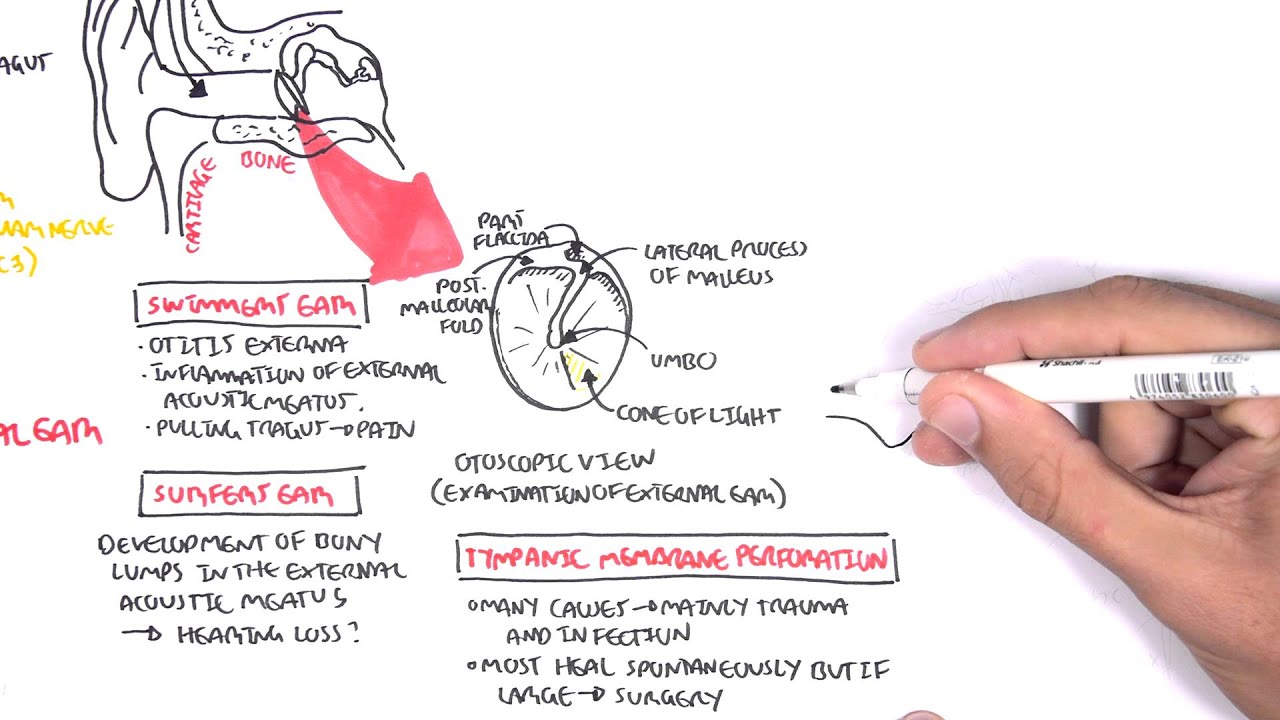 AGUS
BONE
CARTILAGE
NERVE
C3)
PARS
FLACCIDA
LATERAL PROCESS
OF MALLEUS
POST.
MALLEOLAR
FOLD
UMBO
CONE OF LIGHT
SWIMMERS EAR
• OTITIS EXTERNA
• INFLAMMATION OF EXTERNAL
ACOUSTIC MEATUS.
• PULLING TRAGUS → PAIN
AL EAR
OTOSCOPIC VIEW
(EXAMINATION OF EXTERNAL EAR)
SURFERS EAR
DEVELOPMENT OF BONY
LUMPS IN THE EXTERNAL
ACOUSTIC MEATUS
→ HEARING LOSS?
TYMPANIC MEMBRANE PERFORATION
• MANY CAUSES → MAINLY TRAUMA
AND INFECTION
• MOST HEAL SPONTANEOUSLY BUT IF
LARGE → SURGERY